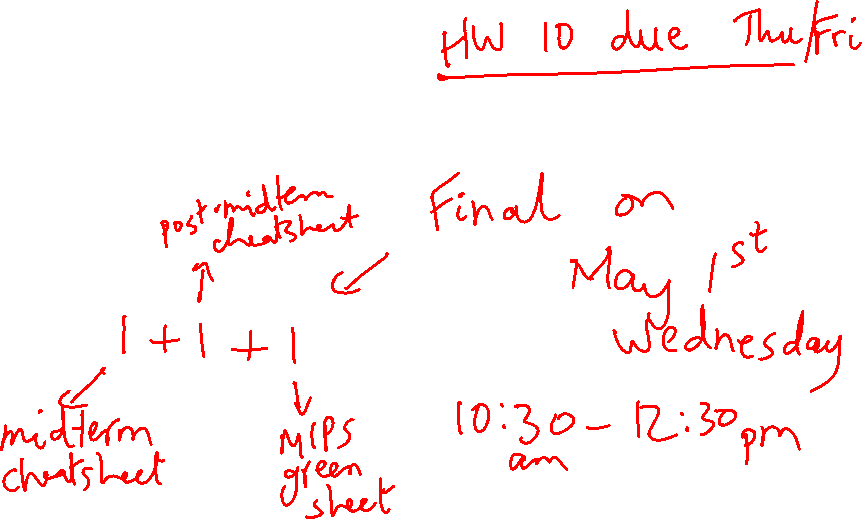 HW 10 due Thu/Fri
Final on
May 1st
Wednesday
10:30 - 12:30 pm
am
post-midterm
cheatsheet
1 + 1 + 1
midterm
cheatsheet
MIPS
green
sheet